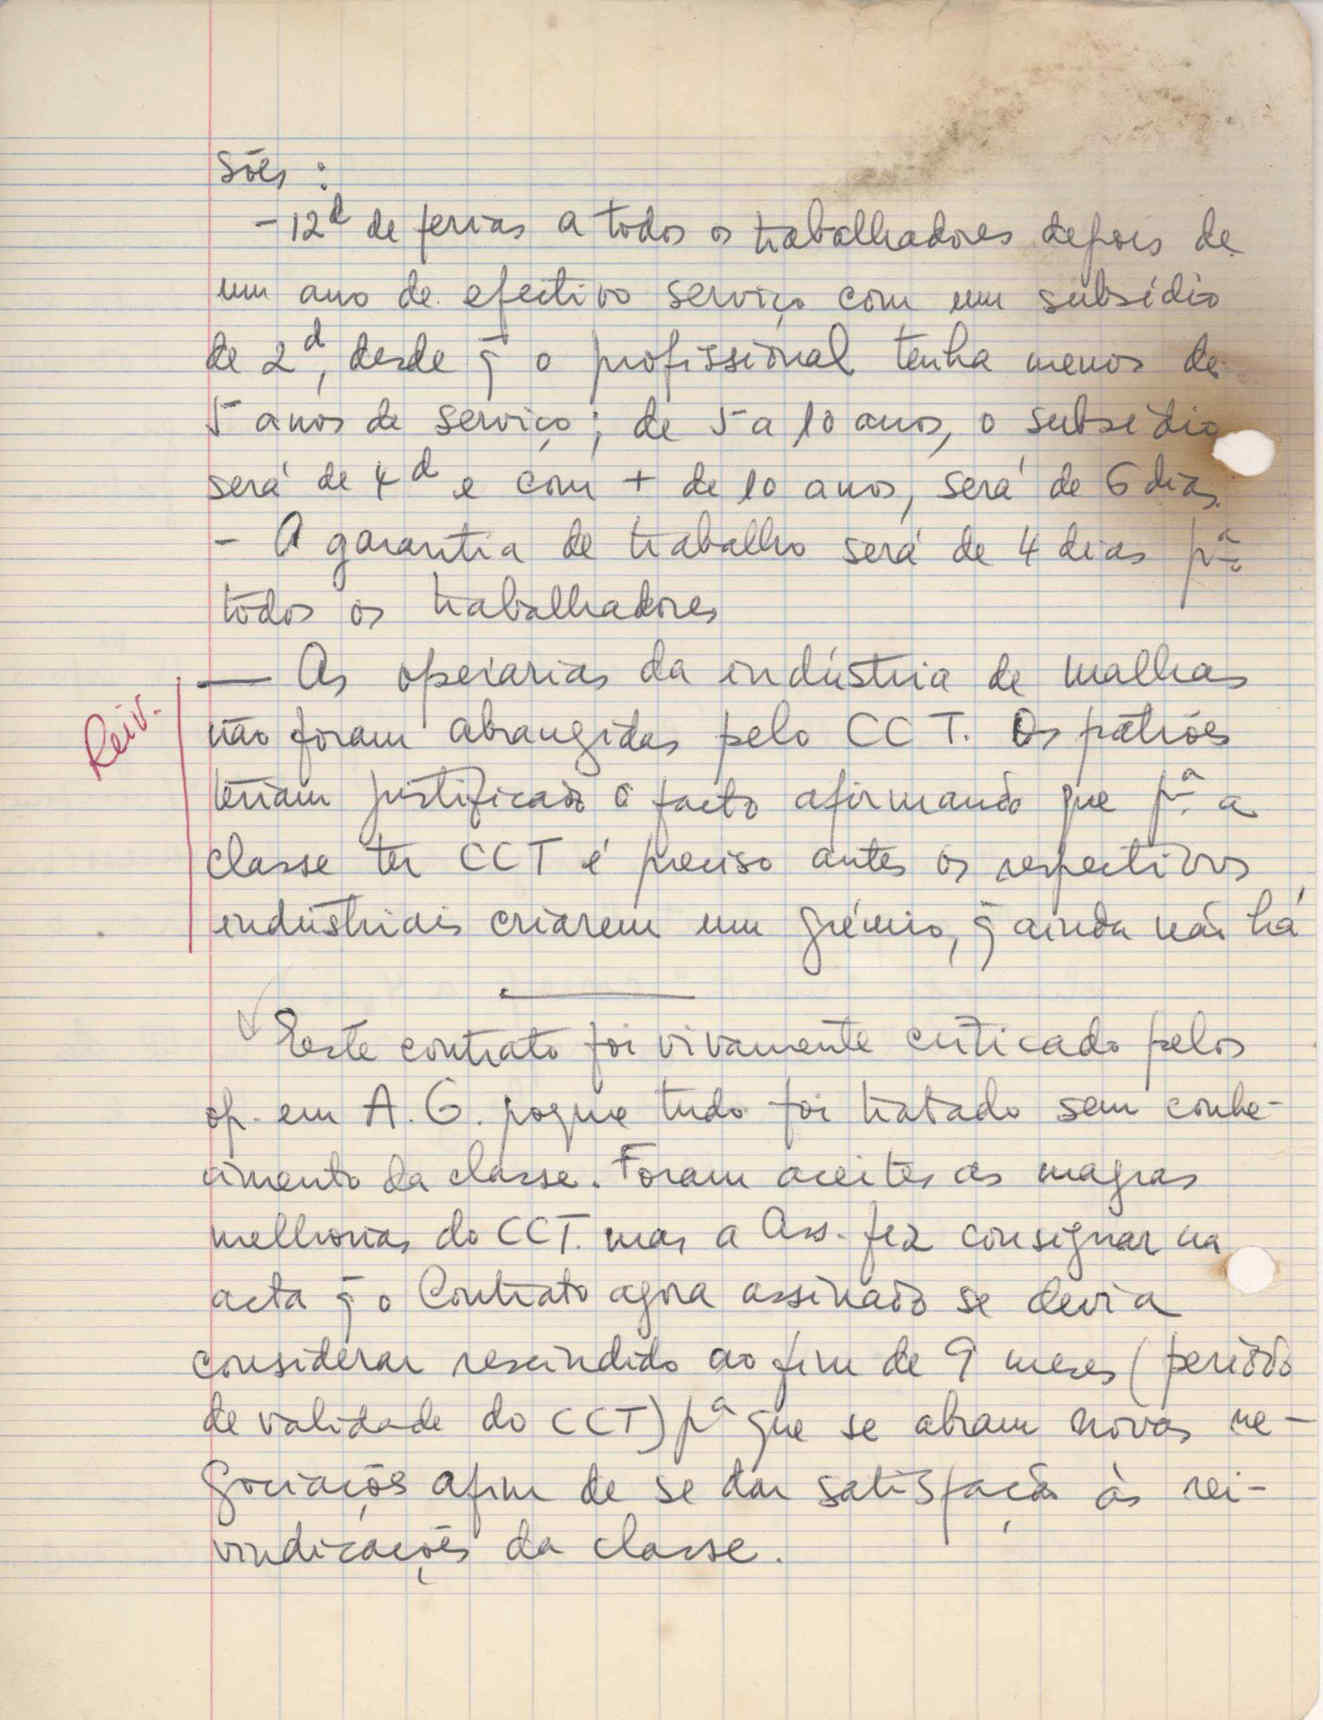 sões:
- 12d de ferias a todos os trabalhadores depois de
um ano de efectivo serviço com um subsídio
de 2d, desde q̄ o profissional tenha menos de
5 anos de serviço; de 5 a 10 anos, o subsídio
será de 4d e com + de 10 anos, será de 6 dias.
- A garantia de trabalho será de 4 dias pª
todos os trabalhadores
— As operarias da indústria de malhas
Reiv.
não foram abrangidas pelo CCT. Os patrões
teriam justificado o facto afirmando que pª a
classe ter CCT é preciso antes os respectivos
industriais criarem um grémio, q̄ ainda não há
Este contrato foi vivamente criticado pelos
op. em A.G. poque tudo foi tratado sem conhe-
cimento da classe. Foram aceites as magras
melhorias do CCT. mas a Ass. fez consignar na
acta q̄ o Contrato agora assinado se devia
considerar rescindido ao fim de 9 meses (período
de validade do CCT) pª que se abram novas ne-
gociações afim de se dar satisfação às rei-
vindicações da classe.